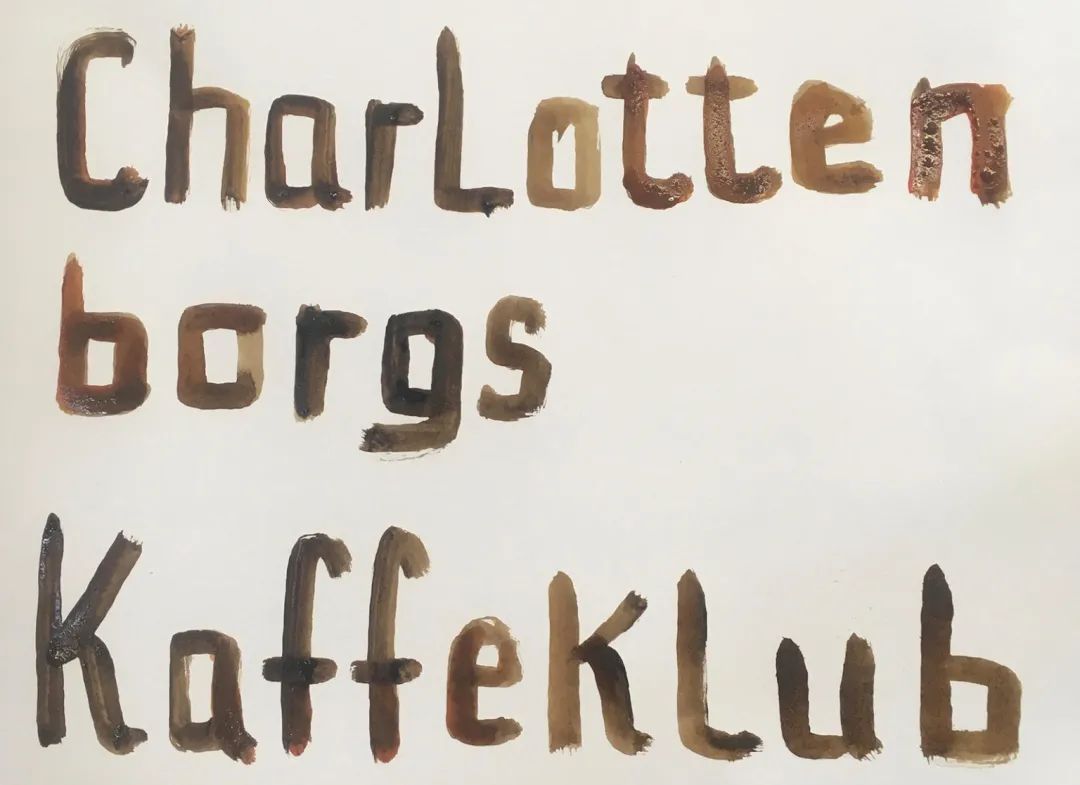 Charlotten
borgs
Kaffeklub